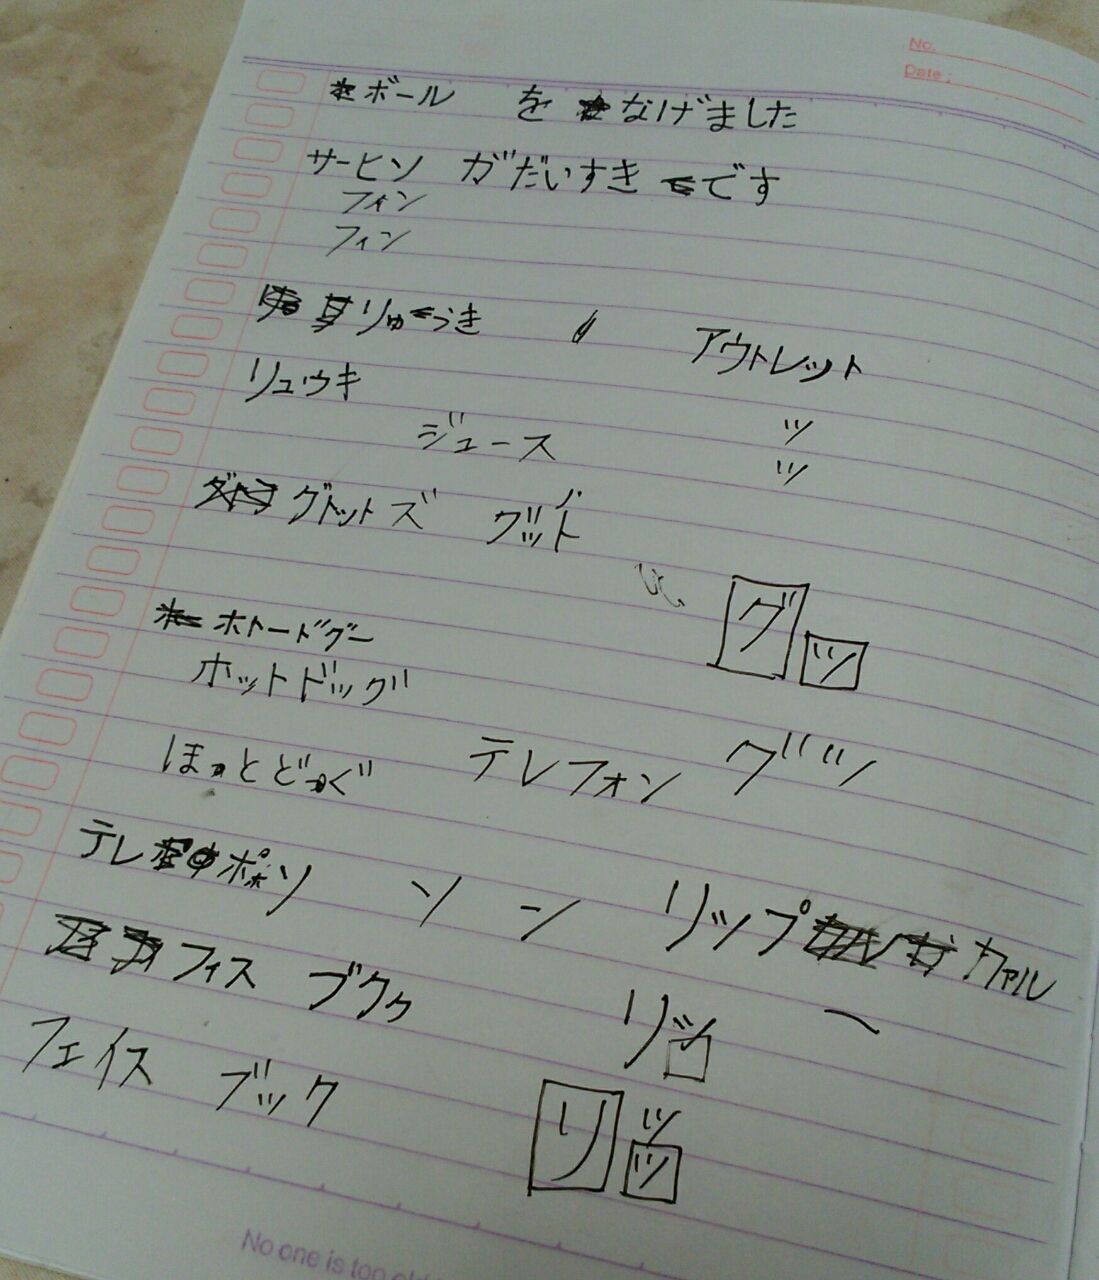 No.
Date :
ボール を なげました
サーヒン がだいすき です
フィン
フィン
りゅうき アウトレット
リュウキ
ジュース ッ
ッ
グトットズ グッド
グ ッ
ホトードグー
ホットドッグ
ほっとどっぐ テレフォン グ ツ
テレポン ソ ン リップ カァル
フィス ブクク リッ
フェイス ブック リ ッ
ッ
No one is too old